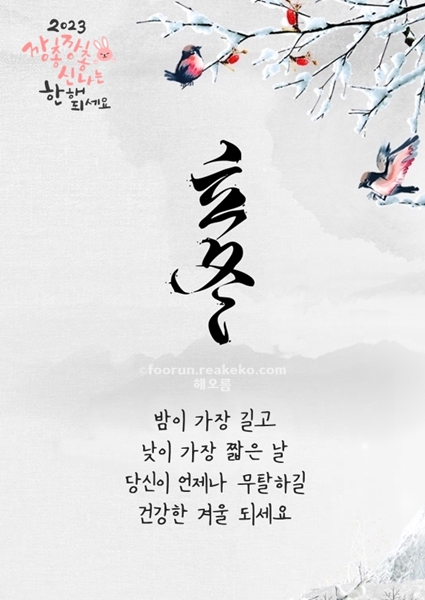 2023
깡총
신나는
한해
되세요
立冬
©foorun.reakeko.com
해오름
밤이 가장 길고
낮이 가장 짧은 날
당신이 언제나 무탈하길
건강한 겨울 되세요